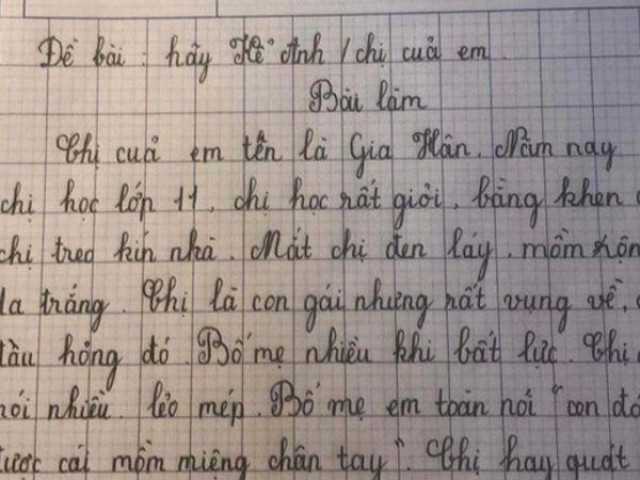 Đề bài: hãy kể anh / chị cuả em
Bài làm
Chị cuả em tên là Gia Hân. Năm nay
chị học lớp 11. chị học rất giỏi. bằng khen
chị treo kín nhà. Mắt chị đen láy. mồm
da trắng. Chị là con gái nhưng rất vụng về.
đó. Bố mẹ nhiều khi bất lực. Chị
nói nhiều. lẻo mép. Bố mẹ em toàn nói "con
được cái mồm miệng chân tay". Chị hay quát